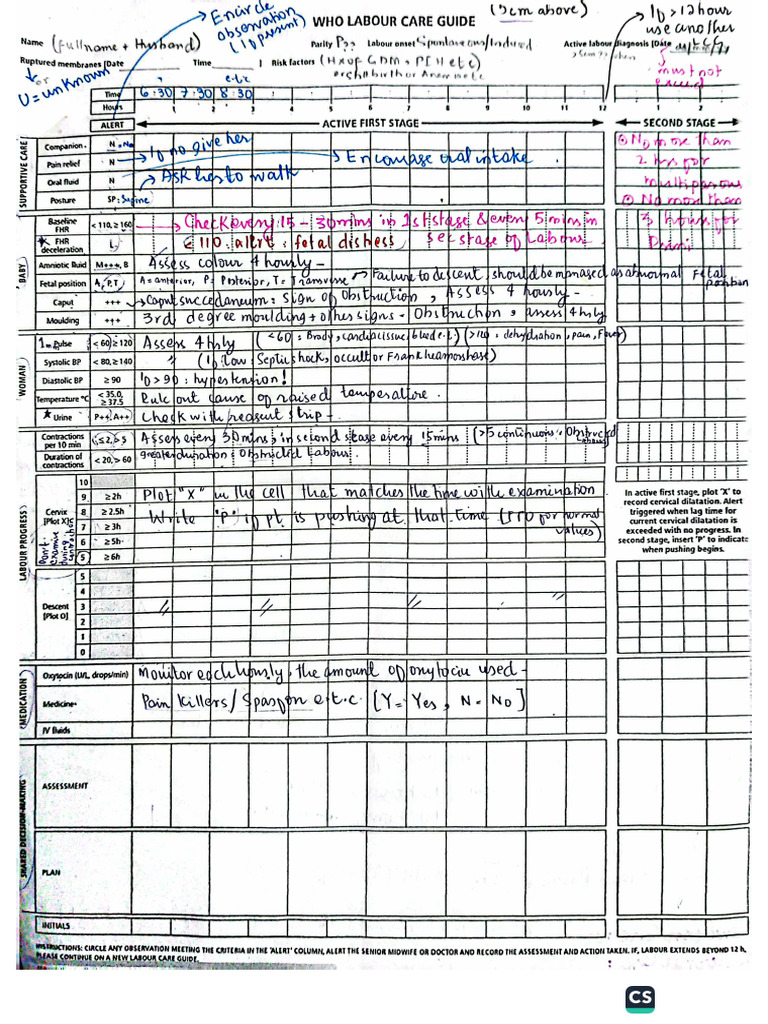 Encircle observation (If present)
WHO LABOUR CARE GUIDE
(5cm above)
If > 12 hour use another
Name (Full name + Husband) Parity P?? Labour onset Spontaneous/Induced Active labour diagnosis [Date
Ruptured membranes [Date Time ] Risk factors (Hx of GDM, PIH etc)
or U = unknown
must not exceed
Time 6:30 7:30 8:30 e.t.c
Hours 1 2 3 4 5 6 7 8 9 10 11 12 1 2
ALERT ACTIVE FIRST STAGE SECOND STAGE
SUPPORTIVE CARE
Companion N = No
Pain relief N → If no give her
Oral fluid N → Encourage oral intake
Posture SP: Supine → Ask her to walk
① No more than 2 hrs for multiparous
② No more than 3 hours for Primi
BABY
Baseline FHR < 110, ≥ 160 → Check every 15 - 30mins in 1st stage & every 5 mins in sec stage of Labour
FHR deceleration L < 110: alert: fetal distress
Amniotic fluid M+++, B Assess colour 4 hourly -
Fetal position A, P, T A = anterior, P = Posterior, T = Transverse → Failure to descent, should be managed as abnormal Fetal position
Caput +++ → Caput succedaneum: Sign of Obstruction, Assess 4 hourly -
Moulding +++ 3rd degree moulding + other signs - Obstruction, assess 4 hrly
WOMAN
Pulse < 60, ≥ 120 Assess 4 hrly (<60: Brady, cardiac issue, bleed e.t.c) (>120: dehydration, pain, Fever)
Systolic BP < 80, ≥ 140 〃 (If Low: Septic shock, occult or Frank heamorrhage)
Diastolic BP ≥ 90 If > 90: hypertension!
Temperature °C < 35.0, ≥ 37.5 Rule out cause of raised temperature.
Urine P++, A++ Check with reagent strip -
Contractions per 10 min ≤ 2, > 5 Assess every 30 mins, in second stage every 15 mins (>5 continuous = Obstructed Labour)
Duration of contractions < 20, > 60 greater duration Obstructed Labour.
LABOUR PROGRESS
Cervix [Plot X] Don't examine during contraction
10
9 ≥ 2h Plot "X" in the cell that matches the time with examination
8 ≥ 2.5h Write 'P' if pt is pushing at that time (TTO for normal values)
7 ≥ 3h
6 ≥ 5h
5 ≥ 6h
In active first stage, plot 'X' to record cervical dilatation. Alert triggered when lag time for current cervical dilatation is exceeded with no progress. In second stage, insert 'P' to indicate when pushing begins.
Descent [Plot O]
5
4
3 〃 〃 〃 〃
2
1
0
MEDICATION
Oxytocin (U/L, drops/min) Monitor each hourly, the amount of oxytocin used -
Medicine Pain Killers/Spasfon e.t.c [Y = Yes, N = No]
IV fluids
SHARED DECISION-MAKING
ASSESSMENT
PLAN
INITIALS
INSTRUCTIONS: CIRCLE ANY OBSERVATION MEETING THE CRITERIA IN THE 'ALERT' COLUMN, ALERT THE SENIOR MIDWIFE OR DOCTOR AND RECORD THE ASSESSMENT AND ACTION TAKEN. IF, LABOUR EXTENDS BEYOND 12 h, PLEASE CONTINUE ON A NEW LABOUR CARE GUIDE.
CS